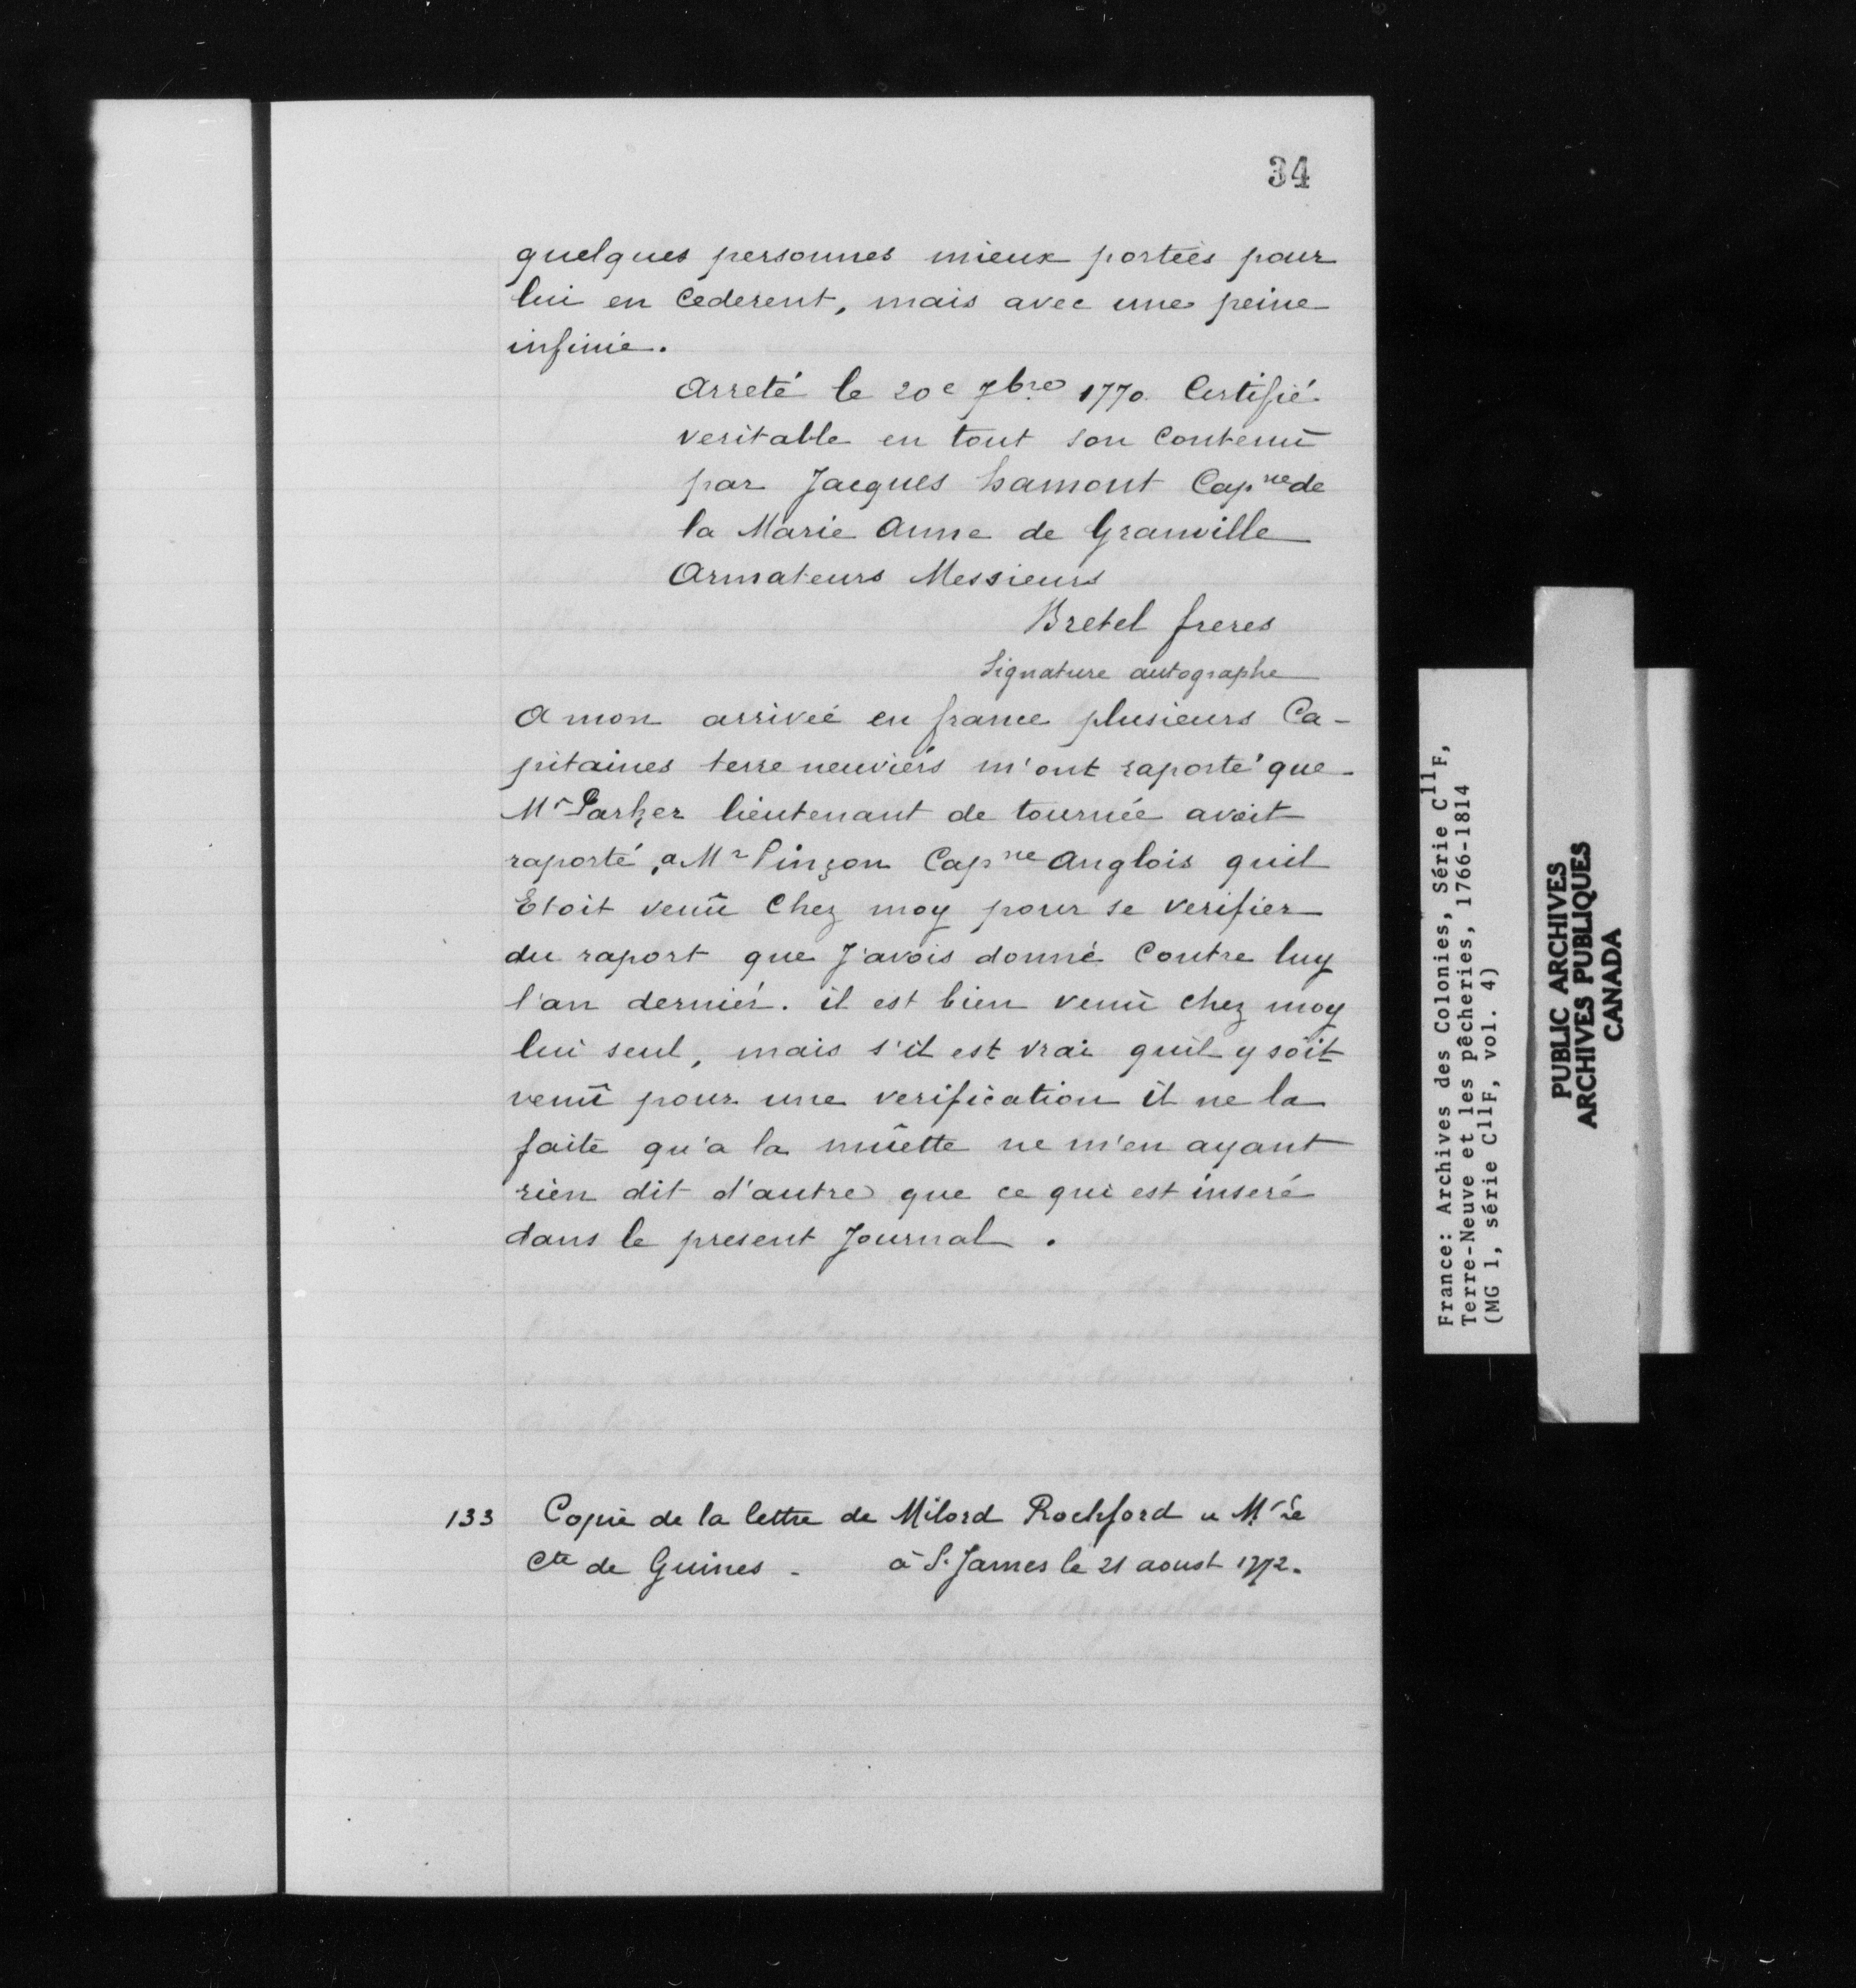 34
quelques personnes mieux porteés pour
lui en Cederent, mais avec une peine
infinie.
Arreté le 20e 7bre 1770. Certifié
veritable en tout son Contenû
par Jacques hamont Capne de
la Marie Anne de Granville
Armateurs Messieurs
Bretel freres
Signature autographe
A mon arriveé en france plusieurs Ca-
pitaines terre neuviérs m'ont raporté que
Mr Parker lieutenant de tournée avoit
raporté a Mr Pinçon Capne Anglois quil
Etoit venû Chez moy pour se verifier
du raport que J'avois donné Contre luy
l'an derniér. il est bien venû chez moy
lui seul, mais s'il est vrai quil y soit
venû pour une verification il ne la
faite qu'a la mûette ne m'en ayant
rien dit d'autre que ce qui est inseré
dans le present Journal.
133 Copie de la lettre de Milord Rochford a Mr le
Cte de Guines - à St James le 21 aoust 1772.
France: Archives des Colonies, Série C11F,
Terre-Neuve et les pêcheries, 1766-1814
(MG 1, série C11F, vol. 4)
PUBLIC ARCHIVES
ARCHIVES PUBLIQUES
CANADA